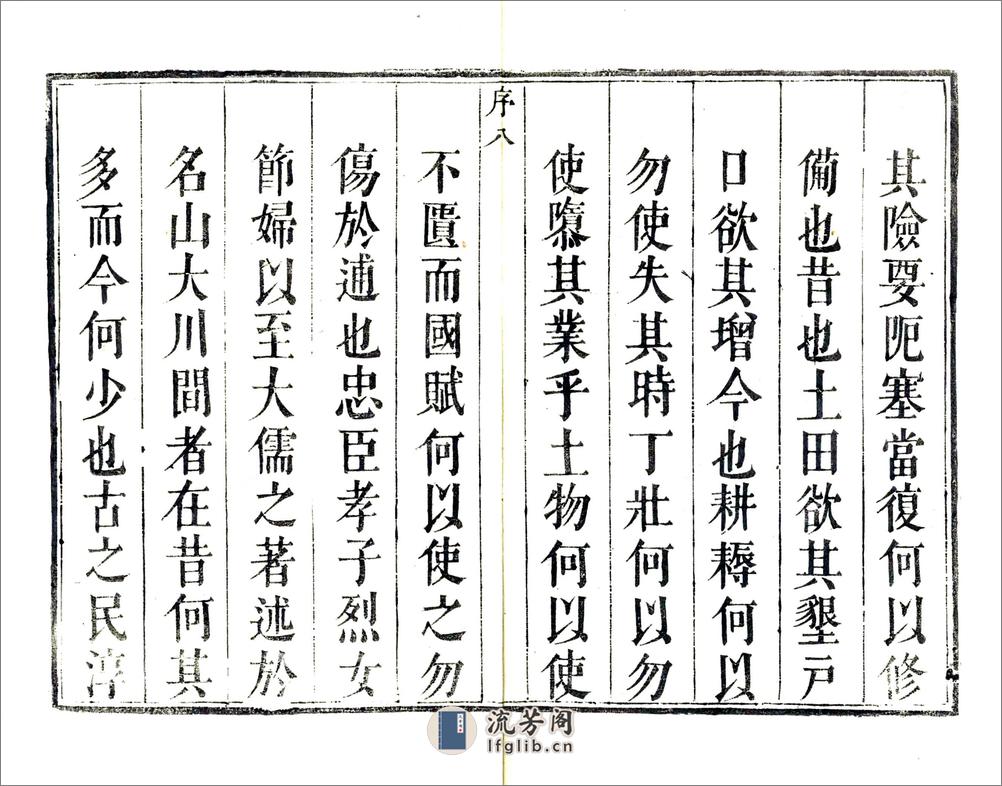 其險要阨塞當復何以修
備也昔也土田欲其墾戸
口欲其增今也耕耨何以
勿使失其時丁壯何以勿
使隳其業乎土物何以使
序八
不匱而國賦何以使之勿
傷於逋也忠臣孝子烈女
節婦以至大儒之著述於
名山大川間者在昔何其
多而今何少也古之民淳
流芳阁
lfglib.cn